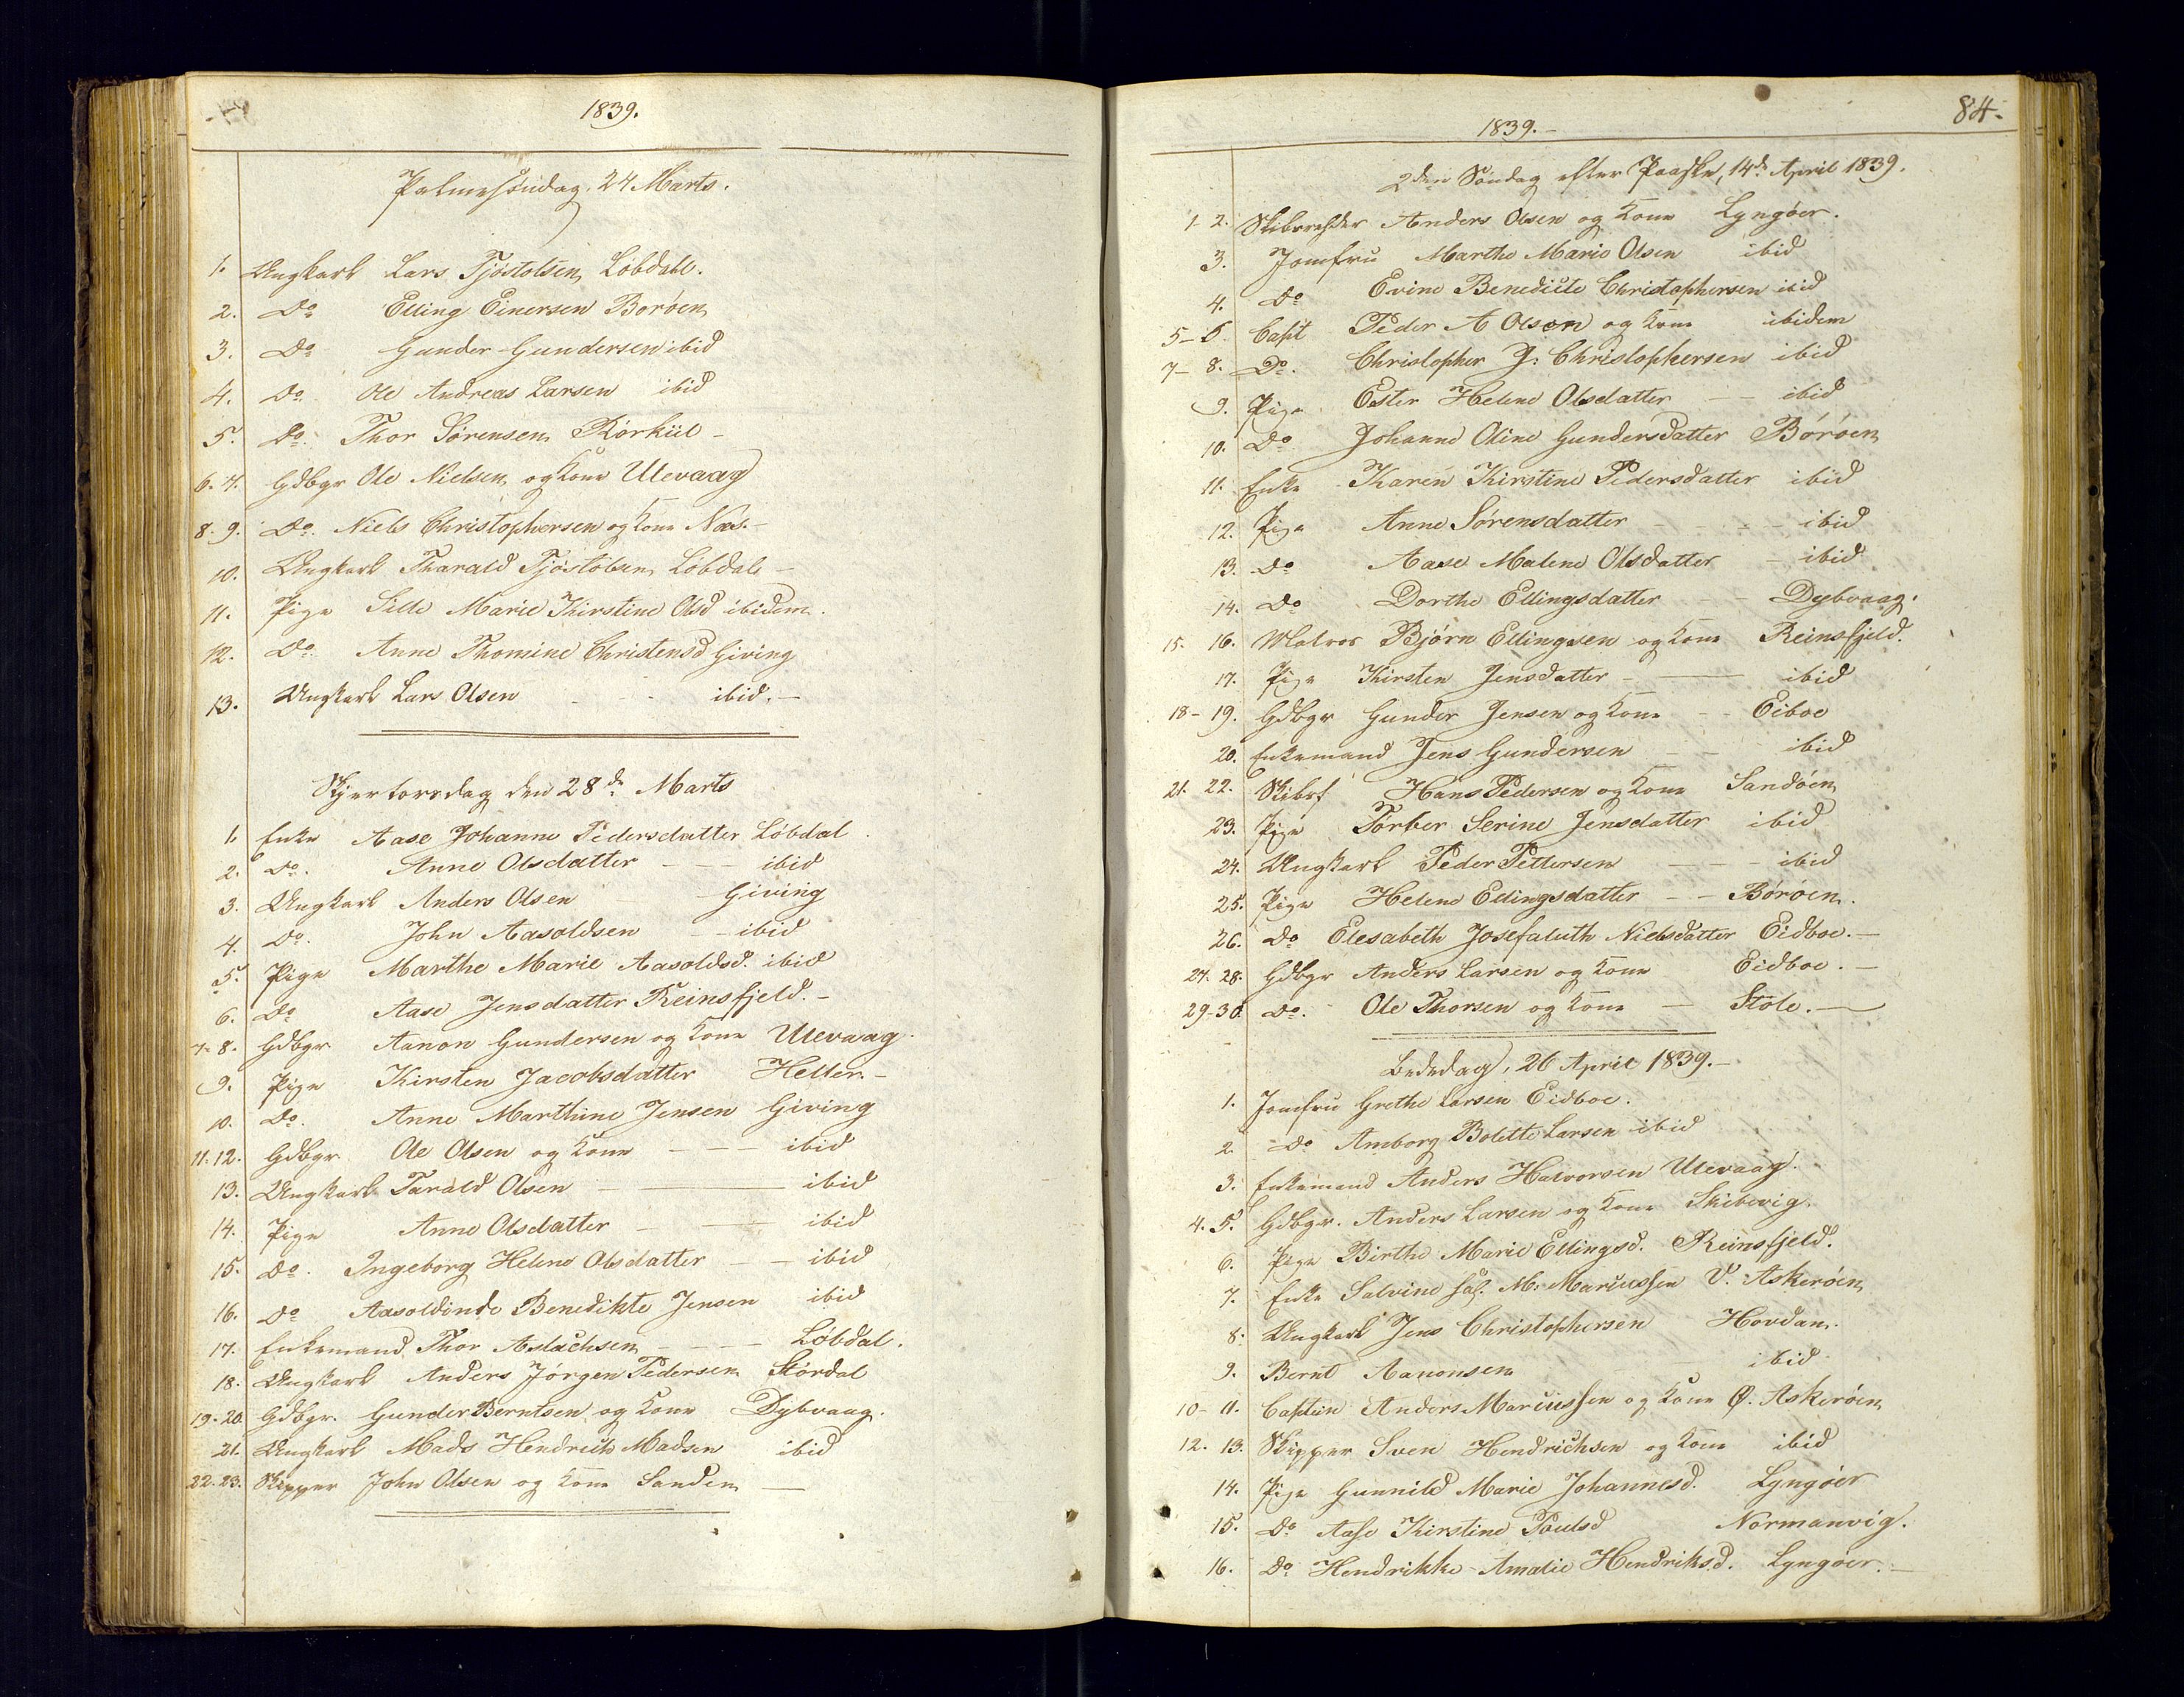 1839.
Palmesøndag, 24 Marts.
1. Ungkarl Lars Tjøstolsen Løbdahl.
2. Do Elling Einersen Borøen
3. Do Gunder Gundersen ibid
4. Do Ole Andreas Larsen ibid
5. Do Thor Sørensen Rørkiil -
6. 7. Gdbgr Ole Nielsen og Kone Utevaag
8. 9. Do Niels Christophersen og Kone Næs. -
10. Ungkarl Tharald Tjøstolsen Løbdals -
11. Pige Sille Marie Kirstine Olsd ibidem.
12. Do Anne Thomine Christensd Giving
13. Ungkarl Lars Olsen - - ibid. -
Skjertorsdag den 28de Marts
1. Enke Aase Johanne Pedersdatter Løbdal.
2. Do. Anne Olsdatter - - ibid
3. Ungkarl Anders Olsen Giving
4. Do. John Aasoldsen - - ibid
5. Pige Marthe Marie Aasoldsd. ibid
6. Do Aase Jensdatter Reinsfjeld. -
7- 8. Gdbgr Aanon Gundersen og Kone Utevaag.
9. Pige Kirsten Jacobsdatter Heller. -
10. Do. Anne Marthine Jensen Giving
11. 12. Gdbgr Ole Olsen og Kone - - - ibid
13. Ungkarl Tarald Olsen - ibid
14. Pige Anne Olsdatter - - ibid
15. Do. Ingeborg Helene Olsdatter - - ibid
16. Do Aasoldine Benedikte Jensen ibid
17. Enkemand Thor Aslachsen - - - Løbdal.
18. Ungkarl Anders Jørgen Pedersen Størdal
19- 20 Gdbgr. Gunder Berntsen og Kone Dybvaag.
21. Ungkarl Mads Hendrich Madsen ibid
22. 23. Skipper John Olsen og Kone Sanden -
84.
1839. -
2den Søndag efter Paaske, 14de April 1839.
1- 2. Skibsreder Anders Olsen og Kone Lyngøer.
3. Jomfru Marthe Marie Olsen ibid
4. Do Evine Benedicte Christophersen ibid
5- 6. Capt Peder A Olsen og Kone ibidem
7- 8. Do. Christopher J. Christophersen ibid
9. Pige Ester Helene Olsdatter - - ibid
10. Do Johanne Oline Gundersdatter Børøen
11. Enke Karen Kirstine Pedersdatter ibid
12. Pige Anne Sørensdatter - - - - ibid
13. Do Aase Malene Olsdatter - ibid
14. Do Dorthe Ellingsdatter - - Dybvaag.
15. 16. Matros Bjørn Ellingsen og Kone Reinsfjeld.
17. Pige Kirsten Jensdatter - - ibid
18- 19. Gdbgr Gunder Jensen og Kone - - Eiboe
20. Enkemand Jens Gundersen - - ibid
21. 22. Skibsf Hans Pedersen og Kone Sandøen
23. Pige Torber Serine Jensdatter ibid
24. Ungkarl Peder Pettersen - - - ibid
25. Pige Helene Ellingsdatter - - Børøen.
26. Do Elesabeth Josefaluth Nielsdatter Eidboe. -
27. 28. Gdbgr Anders Larsen og Kone Eidboe. -
29- 30. Do. Ole Thorsen og Kone - Støle. -
Bededag, 26 April 1839. -
1. Jomfru Grethe Larsen Eidboe.
2. Do Amborg Bolette Larsen ibid
3. Enkemand Anders Halvorsen Utevaag.
4. 5. Gdbgr. Anders Larsen og Kone Skibevig.
6. Pige Birthe Marie Ellingsd. Reinsfjeld.
7. Enke Salvine sal. M. Mariussen V. Askerøen
8. Ungkarl Jens Christophersen Hovdan.
9. Bernt Aanonsen ibid
10- 11. Captein Anders Mariussen og Kone Ø. Askerøen
12. 13. Skipper Sven Hendrichsen og Kone ibid
14. Pige Gunnild Marie Johannesd. Lyngøer
15. Do Aase Kirstine Poulsd Normanvig.
16. Do Hendrikke Amalie Hendriksd. Lyngøer. -